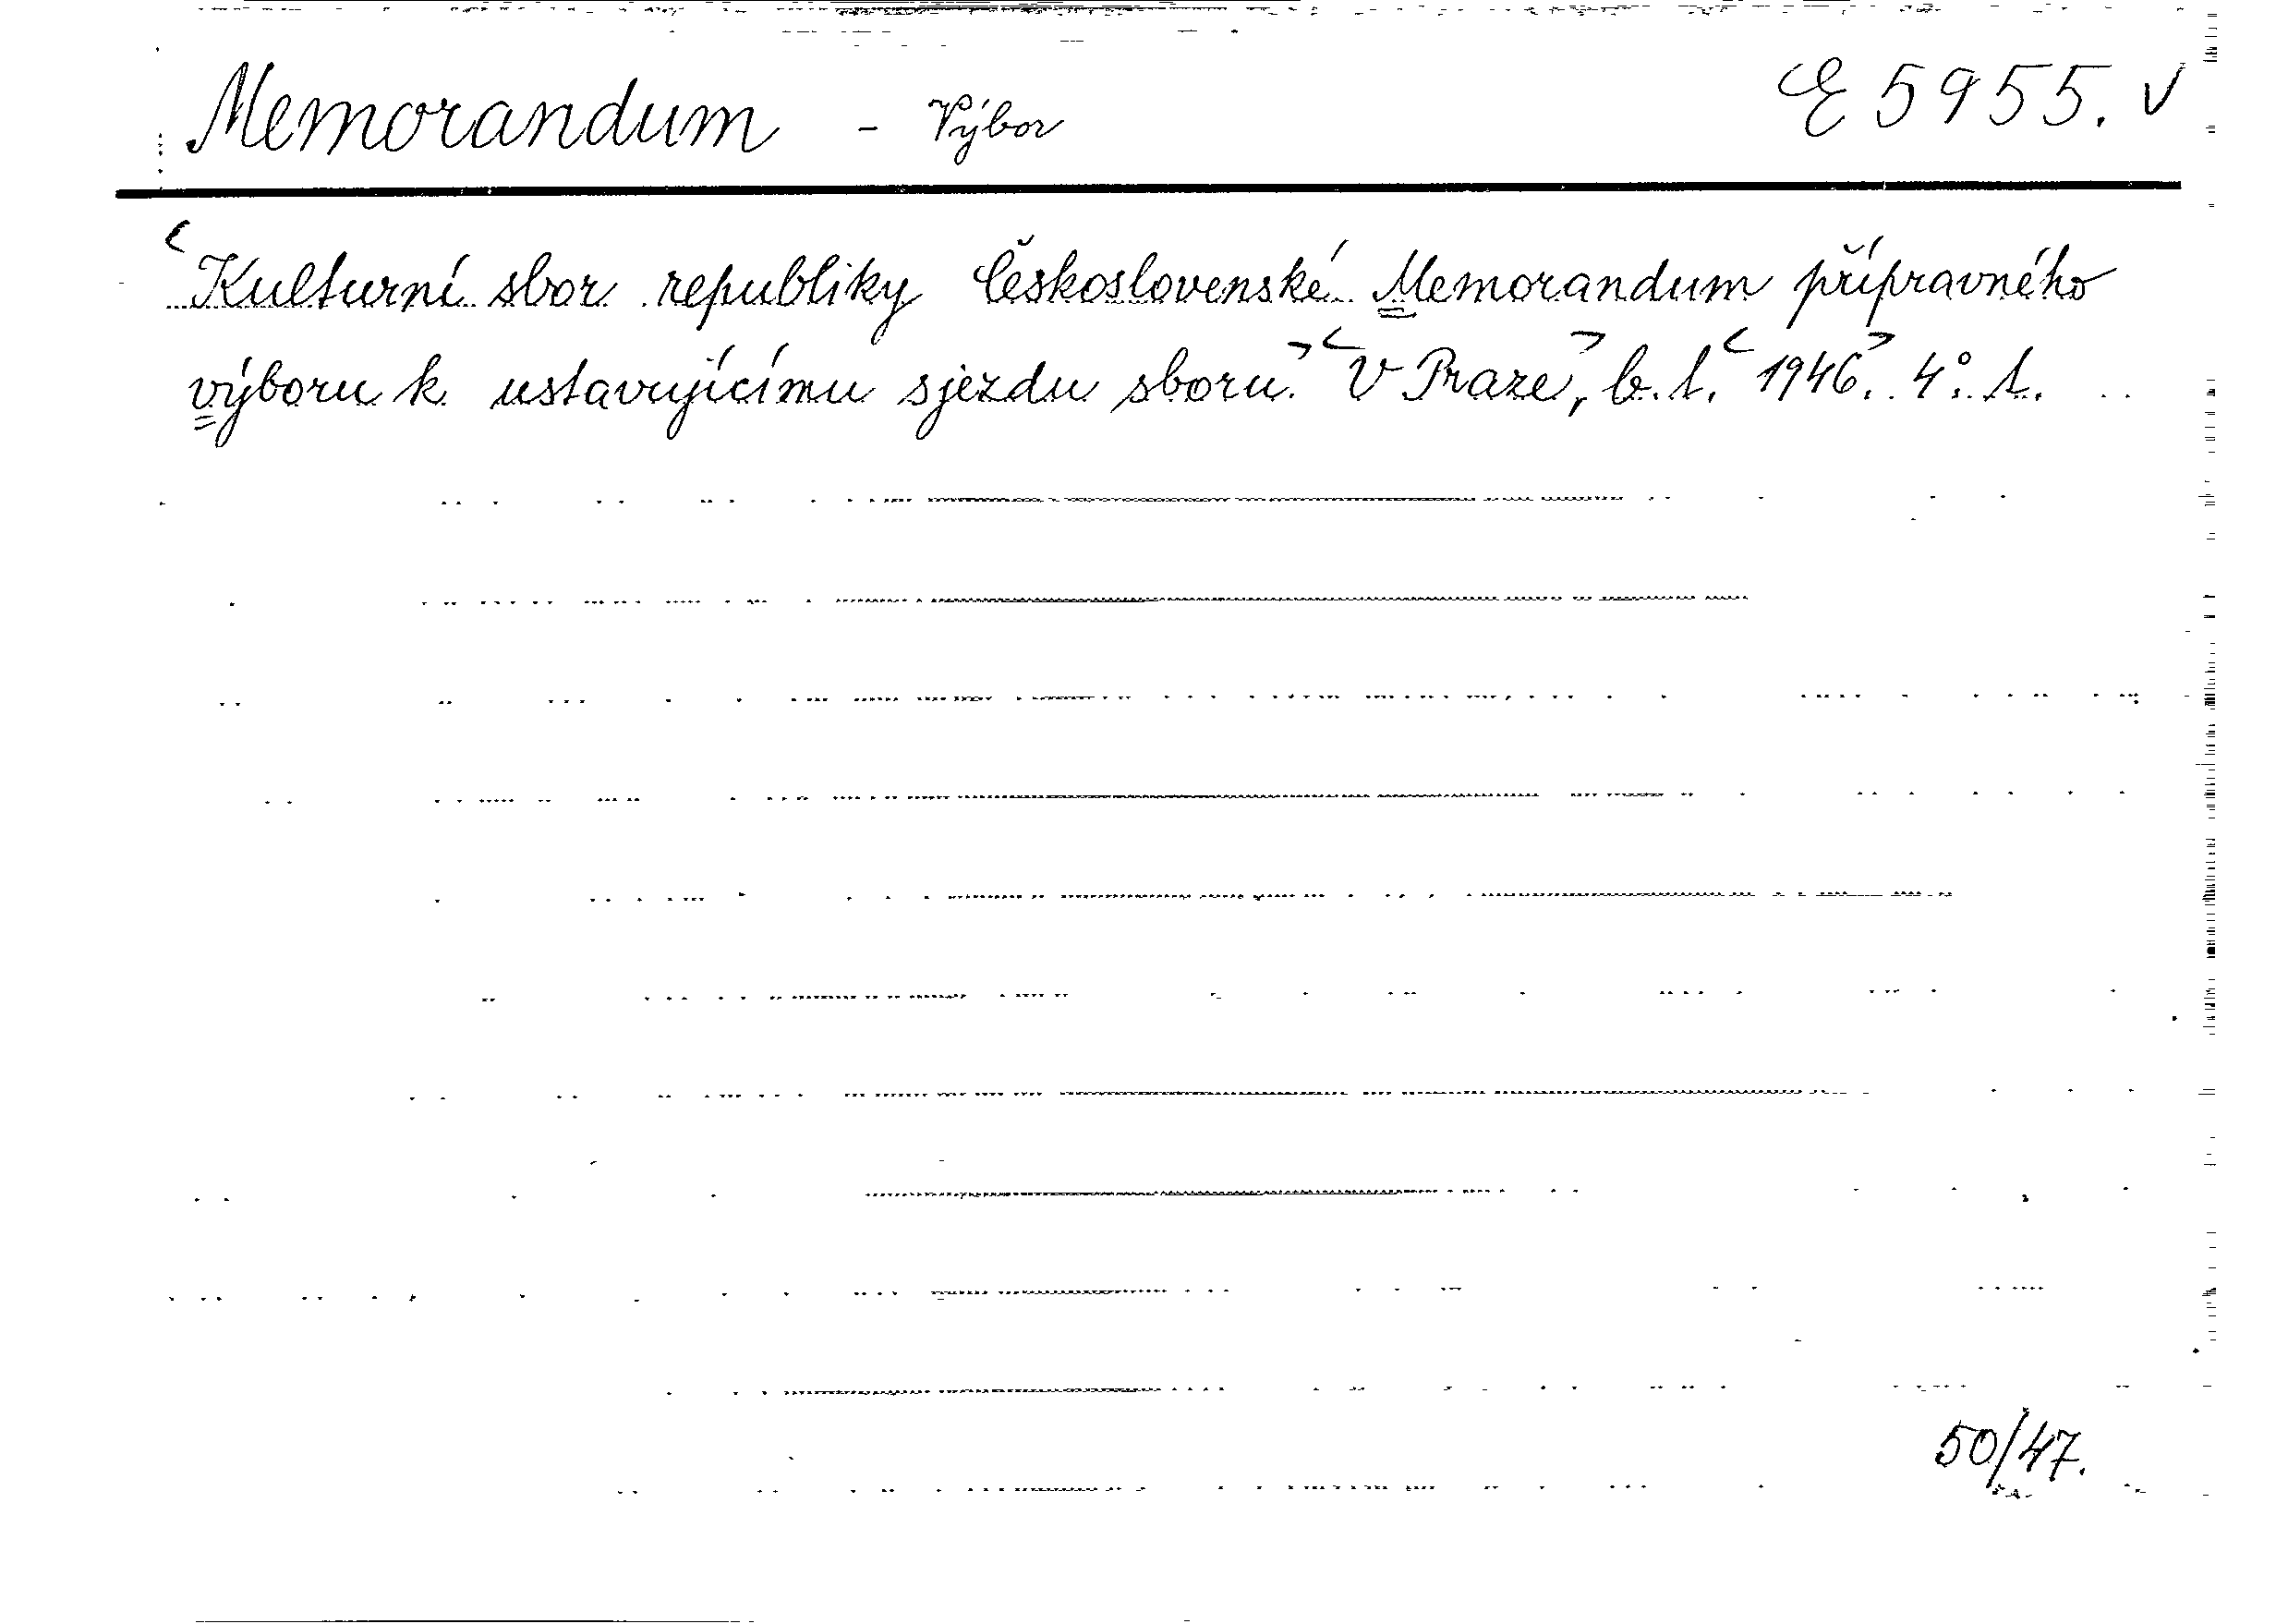 Memorandum - Výbor E 5955. V
<Kulturní sbor republiky Československé. Memorandum přípravného
výboru k ustavujícímu sjezdu sboru.> <V Praze>, b. t. <1946>. 4°. t.
50/47.